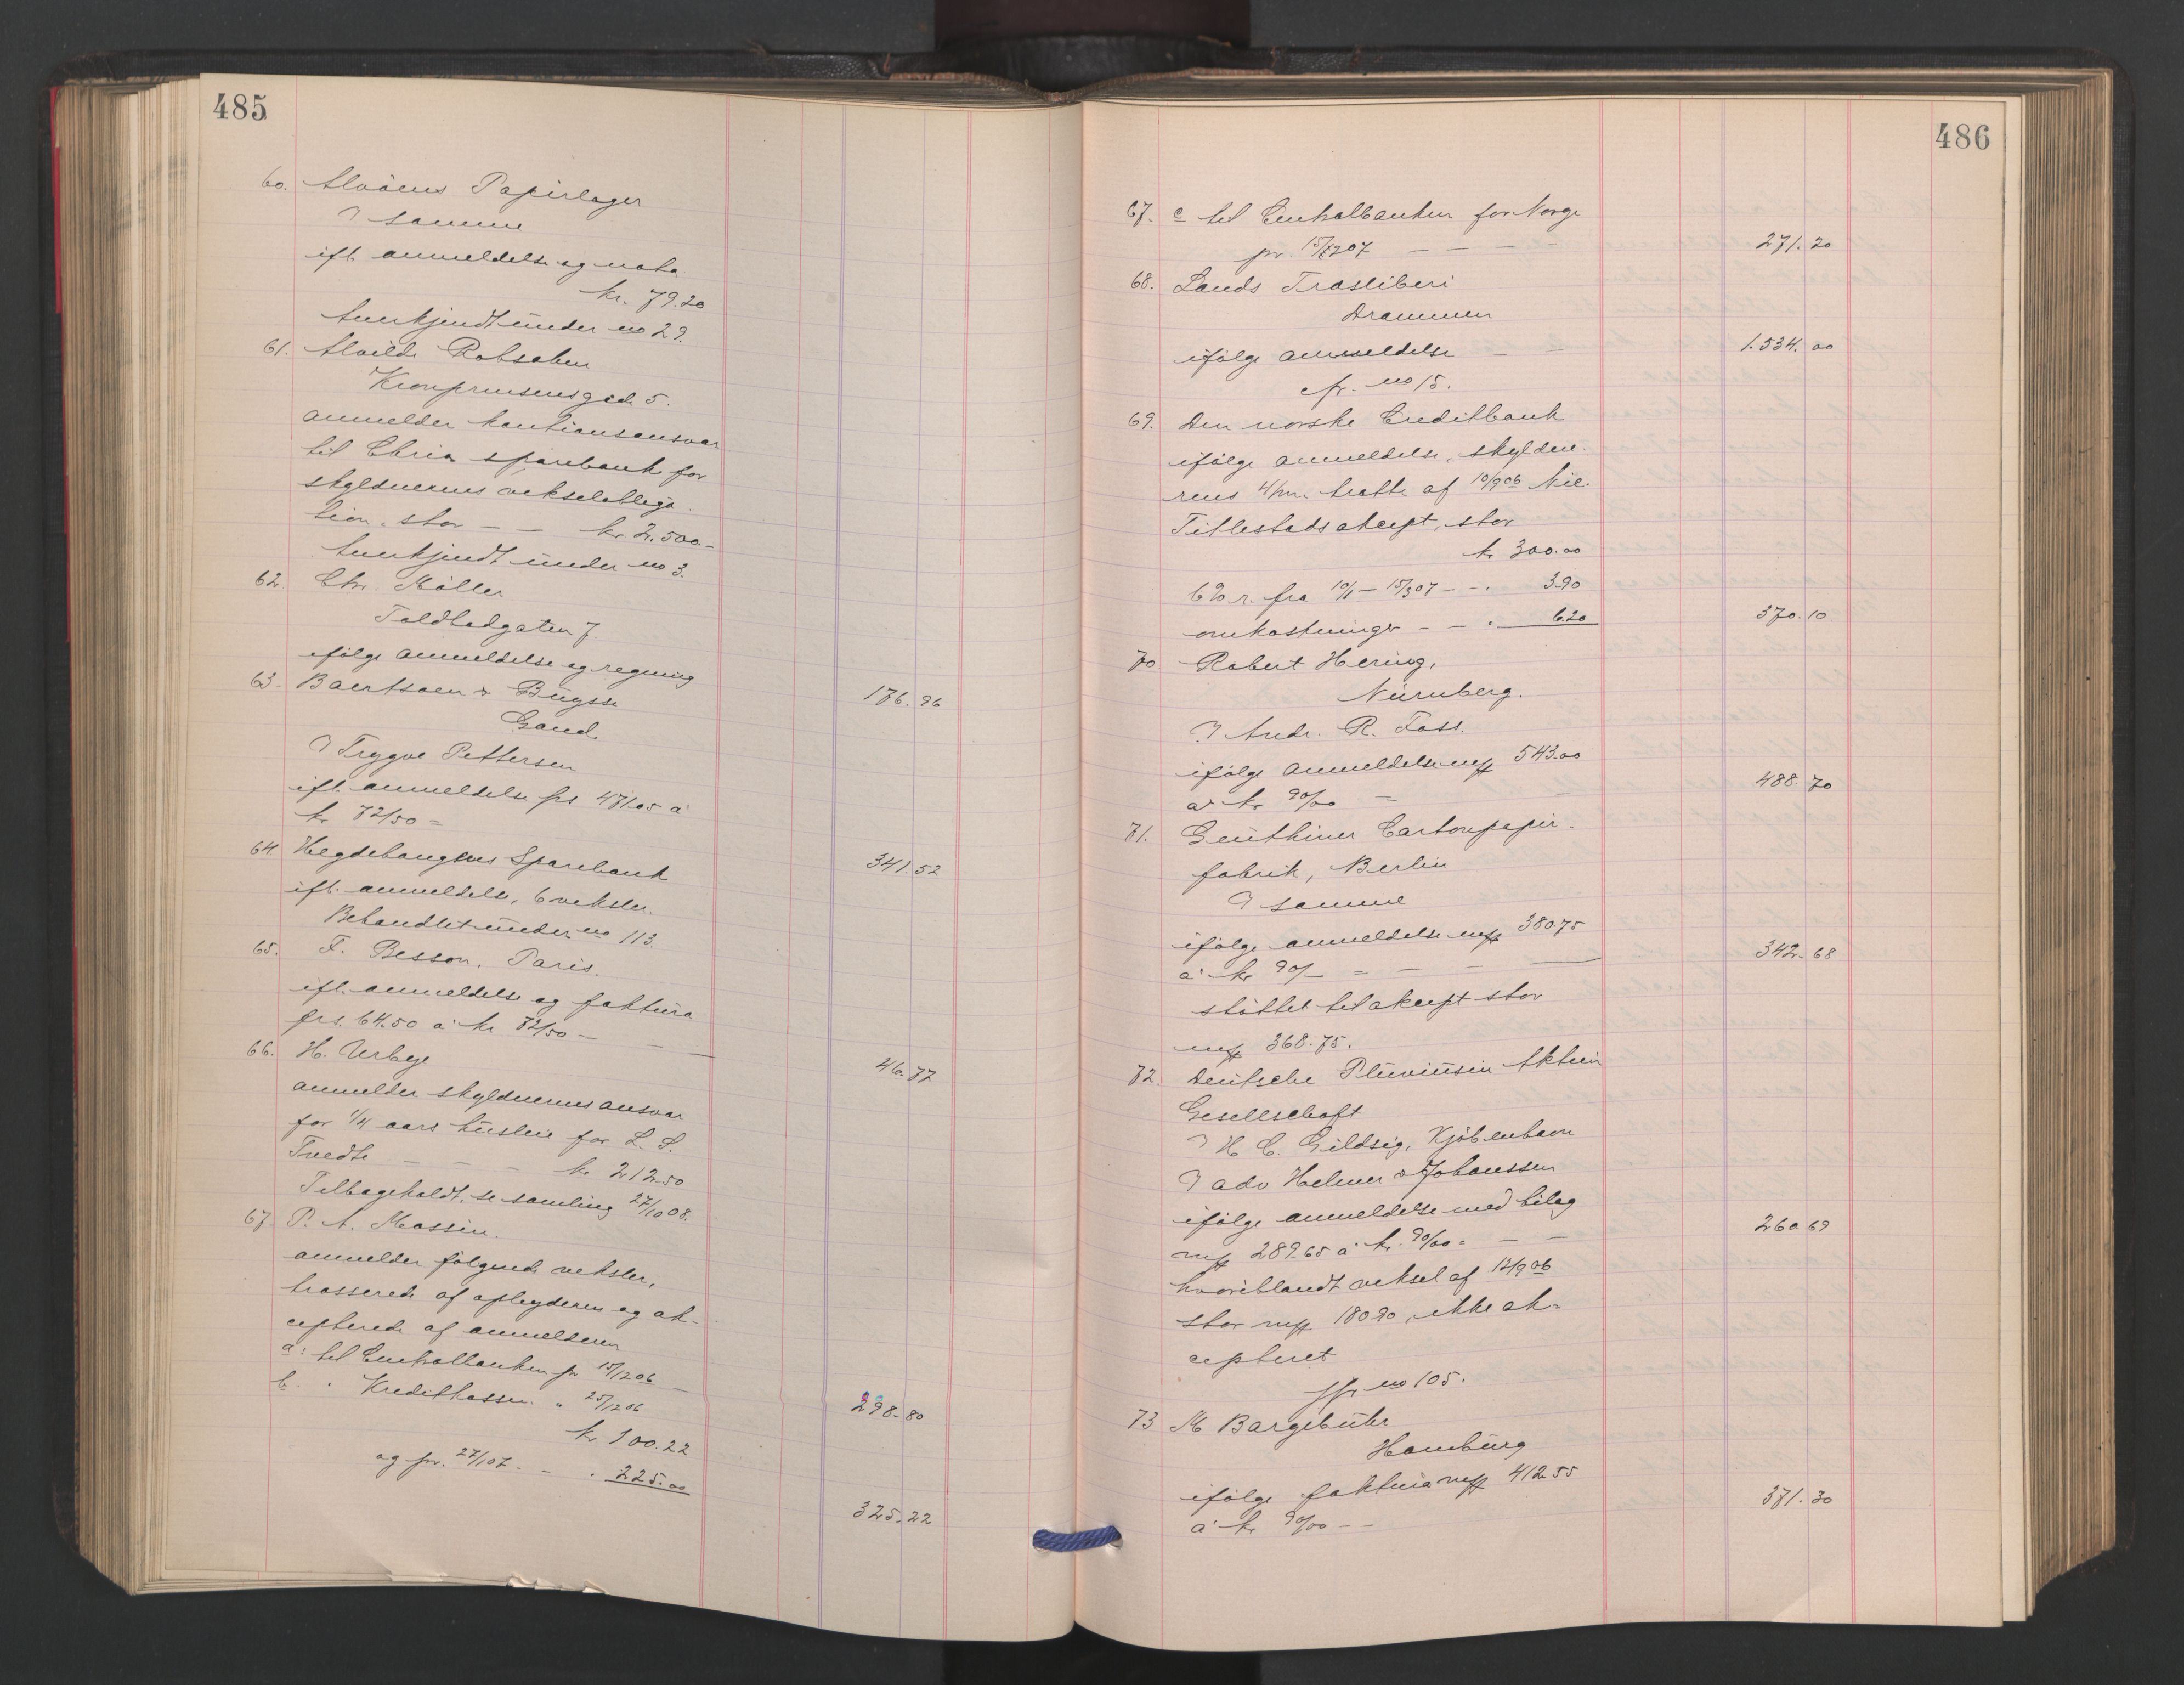 485
60. Alvöens Papirlager
samme
ifl. anmeldelse og nota
kr. 79.20
Anerkjendt under no 29.
61. Alvilde Robsahm
Kronprinsensgade 5.
anmelder kautionsansvar
til Chria sparebank for
skyldnerens vekselobliga-
tion, stor — — kr 2.500.-
Anerkjendt under no 3.
62. Chr. Möller
Toldbodgaten 7
ifölge anmeldelse og regning 176.96
63. Baertsoen & Buysse
Gand.
Trygve Pettersen
ifl. anmeldelse frs 471.05 à
kr 72/50 = 341.52
64. Hegdehaugens Sparebank
ifl. anmeldelse, 6 veksler.
Behandlet under no 113.
65. F. Besson. Paris.
ifl. anmeldelse og faktura
frs. 64.50 à kr 72/50 — — — 46.77
66. H. Urbye
anmelder skyldnerens ansvar
for 1/4 aars husleie for L. S.
Tvedte — — — kr 212.50
Tilbageholdt, se samling 27/10 08.
67. P. A. Massin.
anmelder fölgende veksler,
trasserede af opbyderen og ak-
cepterede af anmelderen
a: til Centralbanken pr 15/12 06 — 298.80
b. " Kreditkassen " 25/12 06
kr 100.22
og pr. 27/1 07. — " 225.00
325.22
486
67. c til Centralbanken for Norge
pr. 15/1207 — — — — 271.20
68. Lands Træsliberi
Drammen
ifölge anmeldelse — — 1.534.00
cfr. no 15.
69. Den norske Creditbank
ifölge anmeldelse, skyldne-
rens 4/mn. tratte af 10/9 06 Nic.
Titlestads akcept, stor
kr 300.00
6% r. fra 10/1 — 15/3 07 — — " 3.90
omkostninger — — " 6.20 370.10
70 Robert Hering,
Nürnberg.
Andr. R. Foss.
ifölge anmeldelse mk 543.00
à kr 90/00 = — 488.70
71. Genthiner Cartonpapir-
fabrik, Berlin
samme
ifölge anmeldelse mk 380.75
à kr 90/— = — — — 342.68
stöttet til akcept stor
mk 368.75.
72. Deutsche Pluviusin Aktien
Gesellschaft
H. C. Gildsig, Kjöbenhavn
adv Helmer & Johanssen
ifölge anmeldelse med bilag
mk 289.65 à kr. 90/00 = — — 260.69
hvoriblandt veksel af 12/9 06
stor mk 180.90, ikke ak-
cepteret
jfr no 105.
73 M Bargebuhr
Hamburg
ifölge faktura mk 412.55
à kr 90/00 — — 371.30